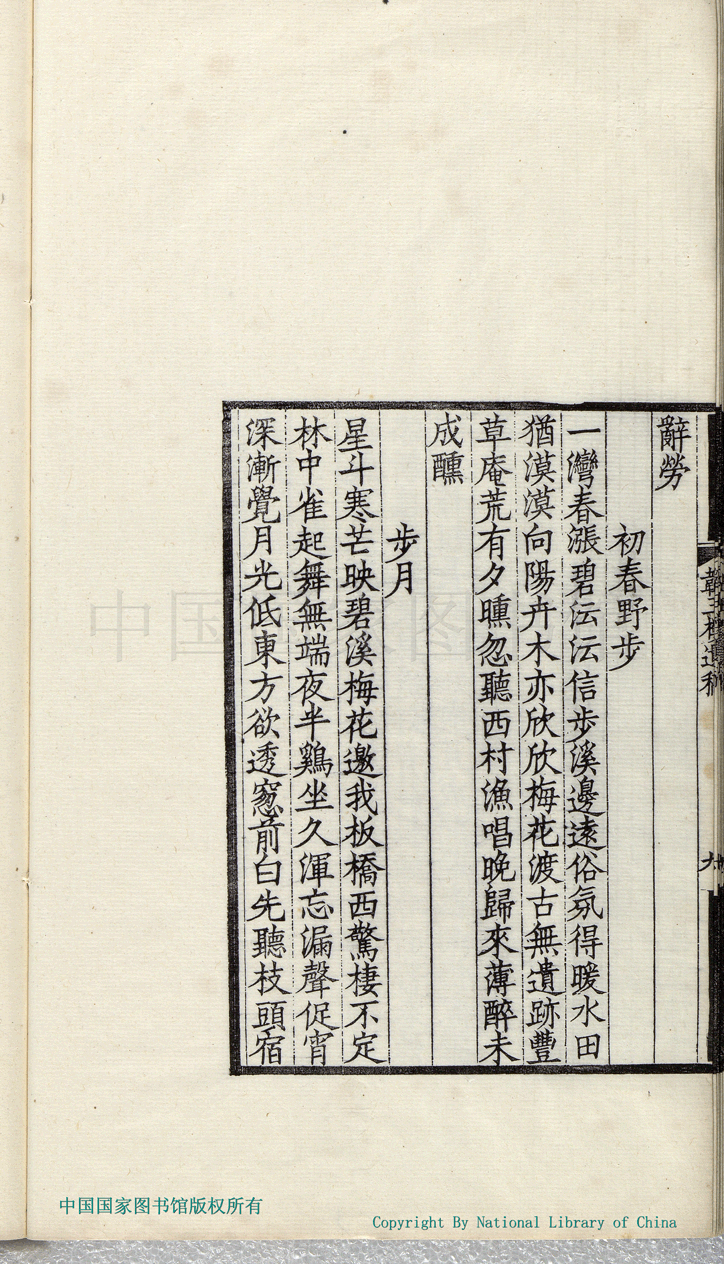 辭勞
初春野步
一灣春漲碧沄沄信步溪邊遠俗氛得暖水田
猶漠漠向陽卉木亦欣欣梅花渡古無遺跡豐
草庵荒有夕曛忽聽西村漁唱晚歸來薄醉未
成醺
步月
星斗寒芒映碧溪梅花邀我板橋西驚棲不定
林中雀起舞無端夜半鷄坐久渾忘漏聲促宵
深漸覺月光低東方欲透窻前白先聽枝頭宿
中国国家图书馆版权所有
Copyright By National Library of China